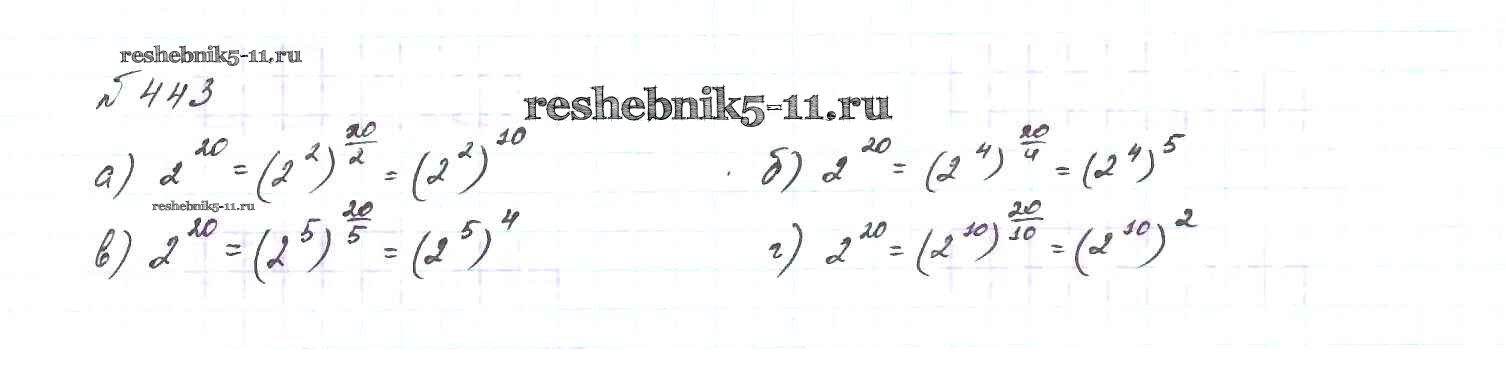 reshebnik5-11.ru
№ 443
reshebnik5-11.ru
а) 2^20 = (2^2)^(20/2) = (2^2)^10
б) 2^20 = (2^4)^(20/4) = (2^4)^5
reshebnik5-11.ru
в) 2^20 = (2^5)^(20/5) = (2^5)^4
г) 2^20 = (2^10)^(20/10) = (2^10)^2